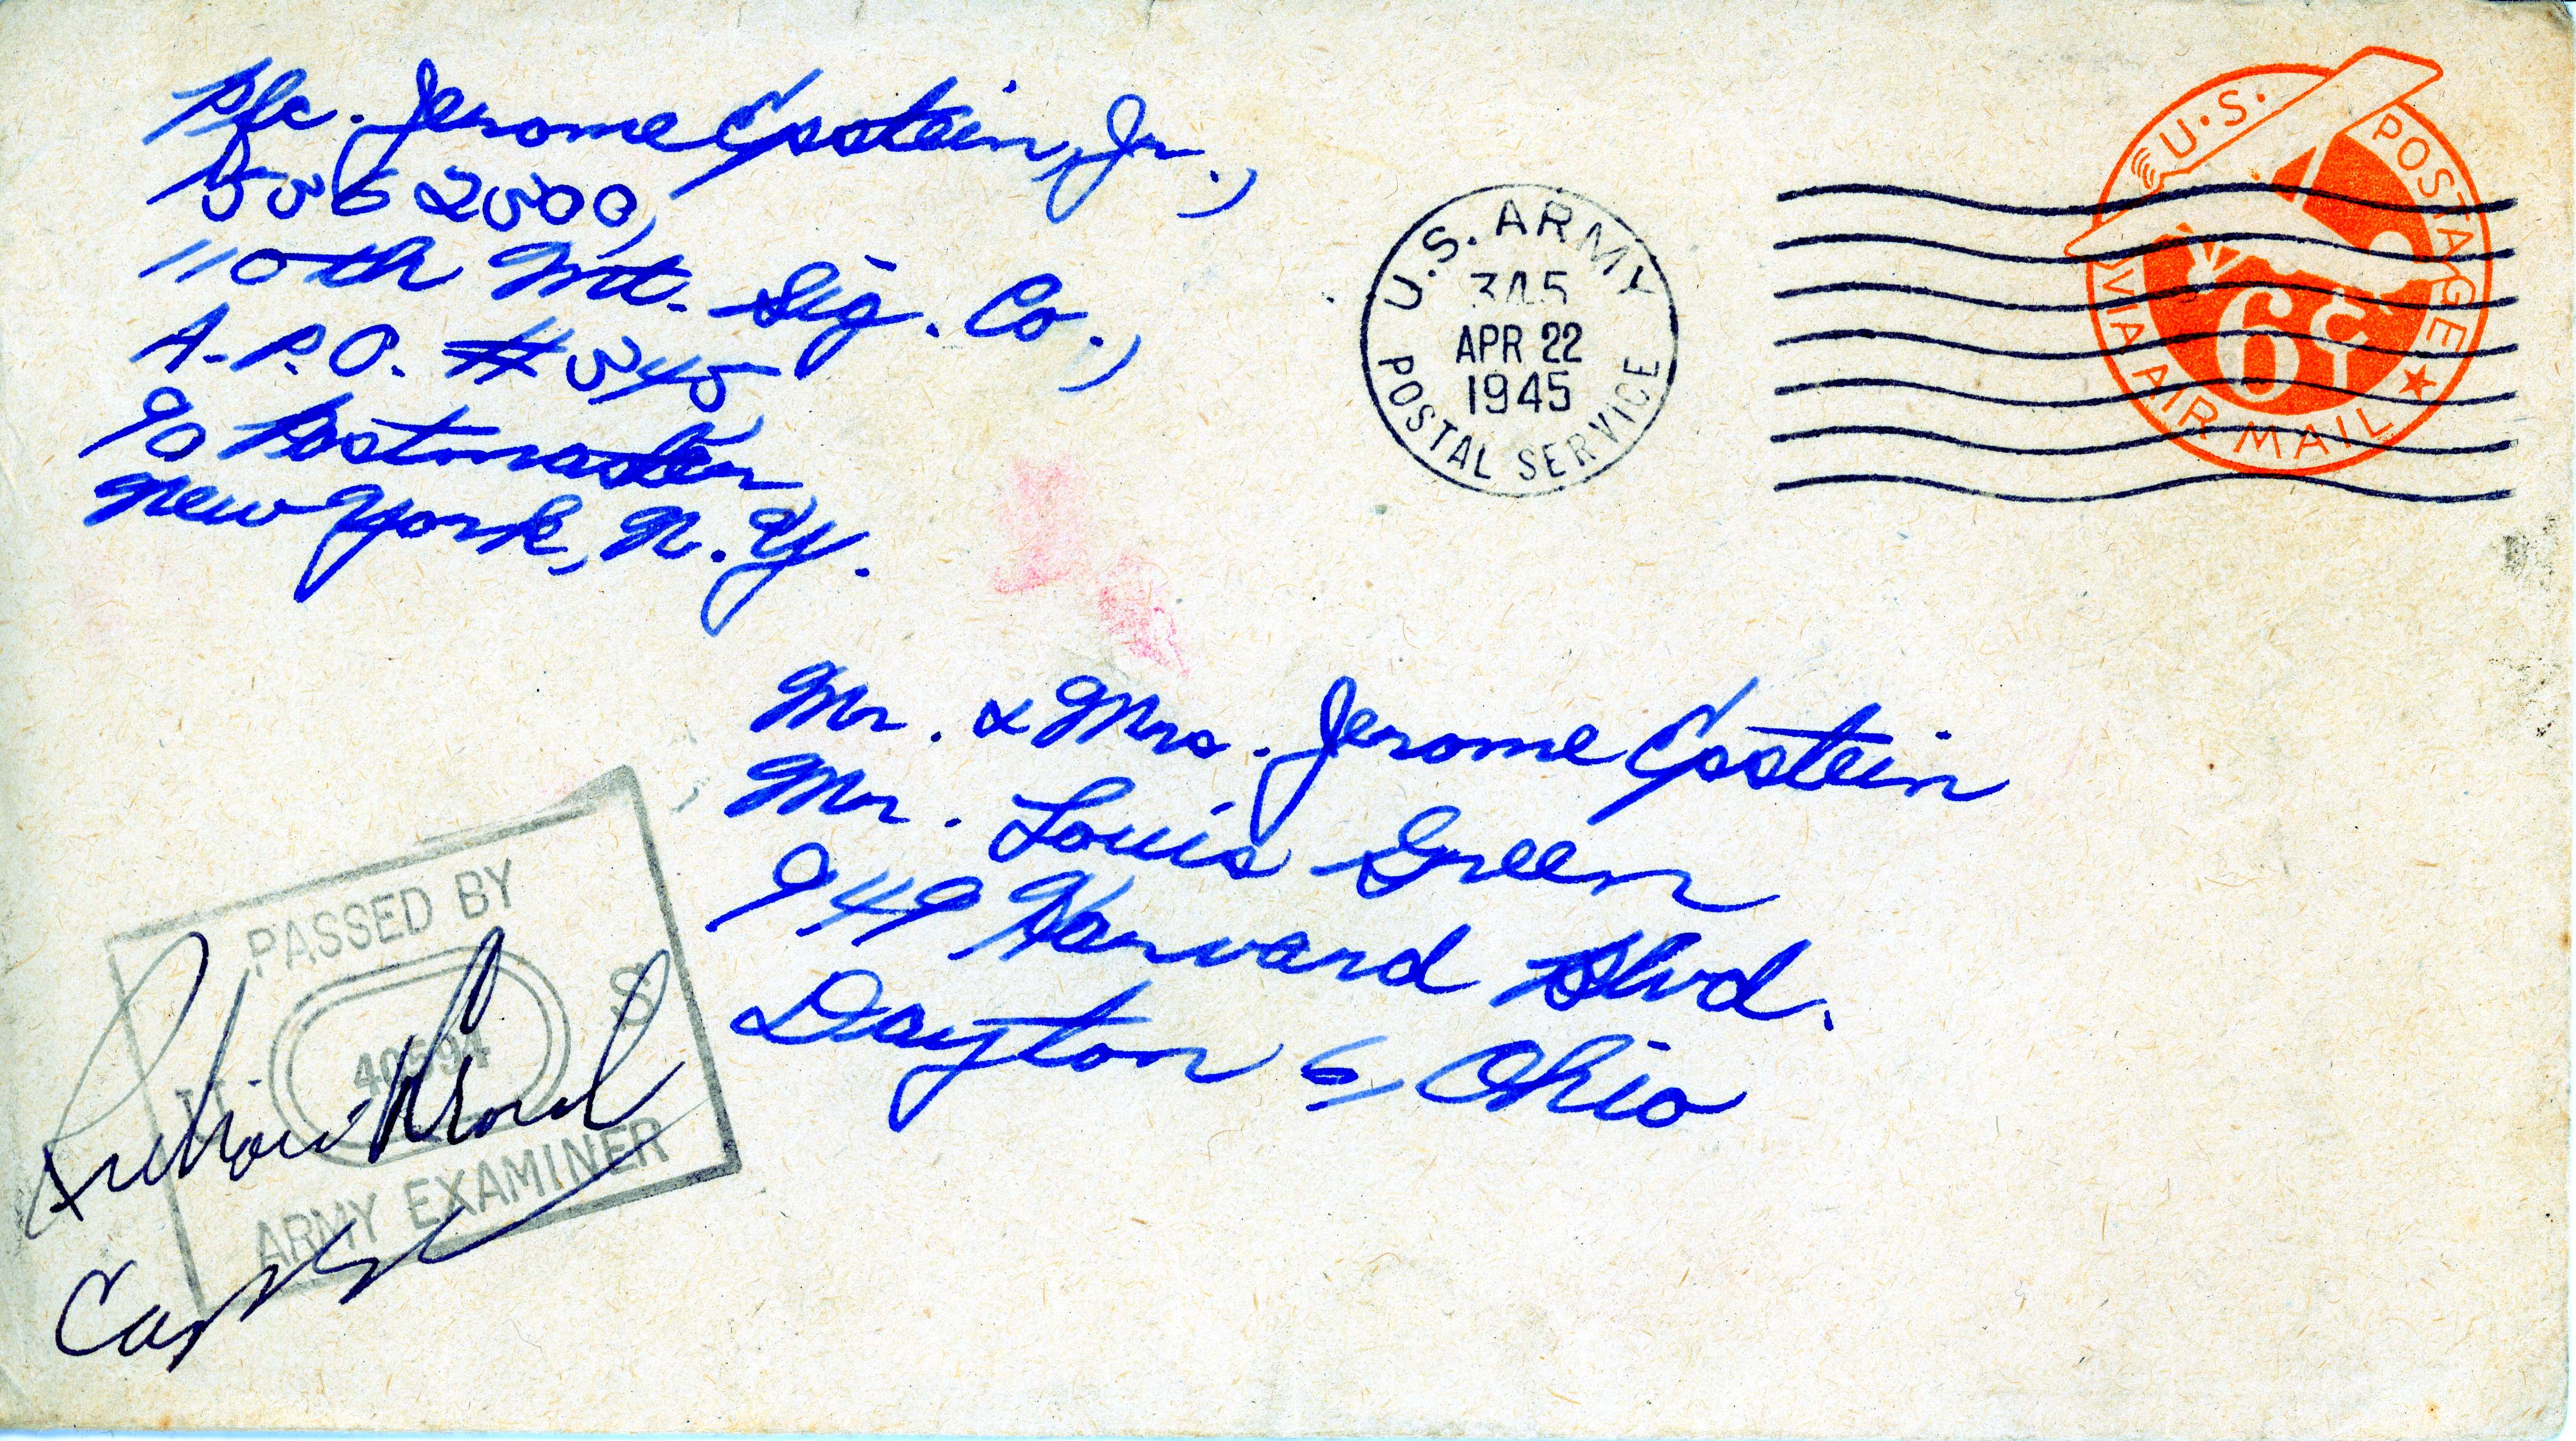 Pfc. Jerome Epstein, Jr.,
110th Mt. Sig. Co.,
A.P.O. #345,
c/o Postmaster,
New York, N.Y.
U.S. ARMY
345
APR 22
1945
POSTAL SERVICE
U.S. POSTAGE
6¢
VIA AIR MAIL
Mr. & Mrs. Jerome Epstein
Mr. Louis Green
949 Harvard Blvd.
Dayton 6, Ohio
PASSED BY
U. S
40594
ARMY EXAMINER